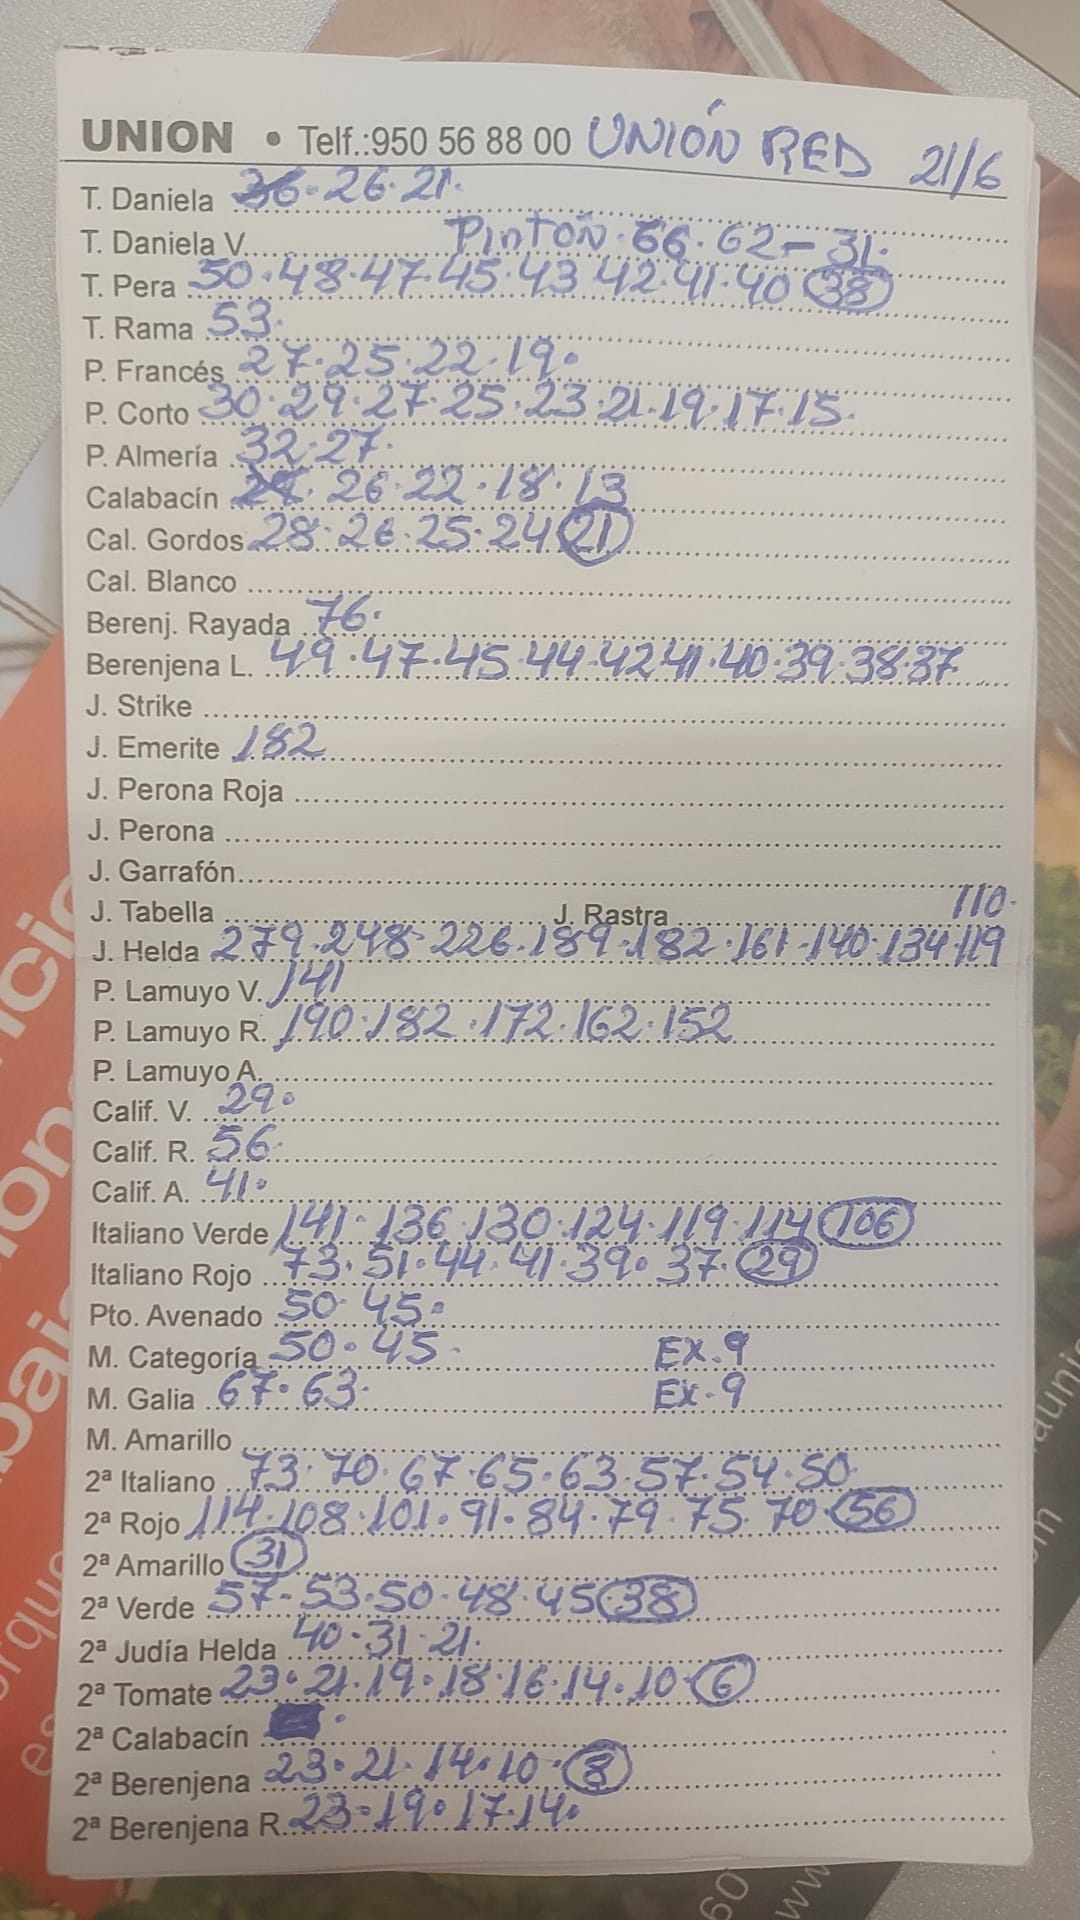 UNION • Telf.:950 56 88 00 UNIÓN RED 21/6
T. Daniela 36·26·21·
T. Daniela V. Pinton·66·62-31·
T. Pera 50·48·47·45·43 42·41·40 38
T. Rama 53·
P. Francés 27·25·22·19·
P. Corto 30·29·27·25·23·21·19·17·15·
P. Almería 32·27·
Calabacín 26·22·18·13
Cal. Gordos 28·26·25·24 21
Cal. Blanco
Berenj. Rayada 76·
Berenjena L. 49·47·45·44·42 41·40·39·38·37
J. Strike
J. Emerite 182
J. Perona Roja
J. Perona
J. Garrafón
J. Tabella J. Rastra 110·
J. Helda 279·248·226·189·182·161·140·134·119
P. Lamuyo V. 141
P. Lamuyo R. 190·182·172·162·152
P. Lamuyo A.
Calif. V. 29·
Calif. R. 56·
Calif. A. 41·
Italiano Verde 141·136·130·124·119·114 106
Italiano Rojo 73·51·44·41·39·37· 29
Pto. Avenado 50·45·
M. Categoría 50·45· Ex·9
M. Galia 67·63· Ex·9
M. Amarillo
2ª Italiano 73·70·67·65·63·57·54·50·
2ª Rojo 114·108·101·91·84·79·75·70· 56
2ª Amarillo 31
2ª Verde 57-53·50·48·45 38
2ª Judía Helda 40·31·21·
2ª Tomate 23·21·19·18·16·14·10· 6
2ª Calabacín
2ª Berenjena 23·21·14·10· 8
2ª Berenjena R. 23·19·17·14·